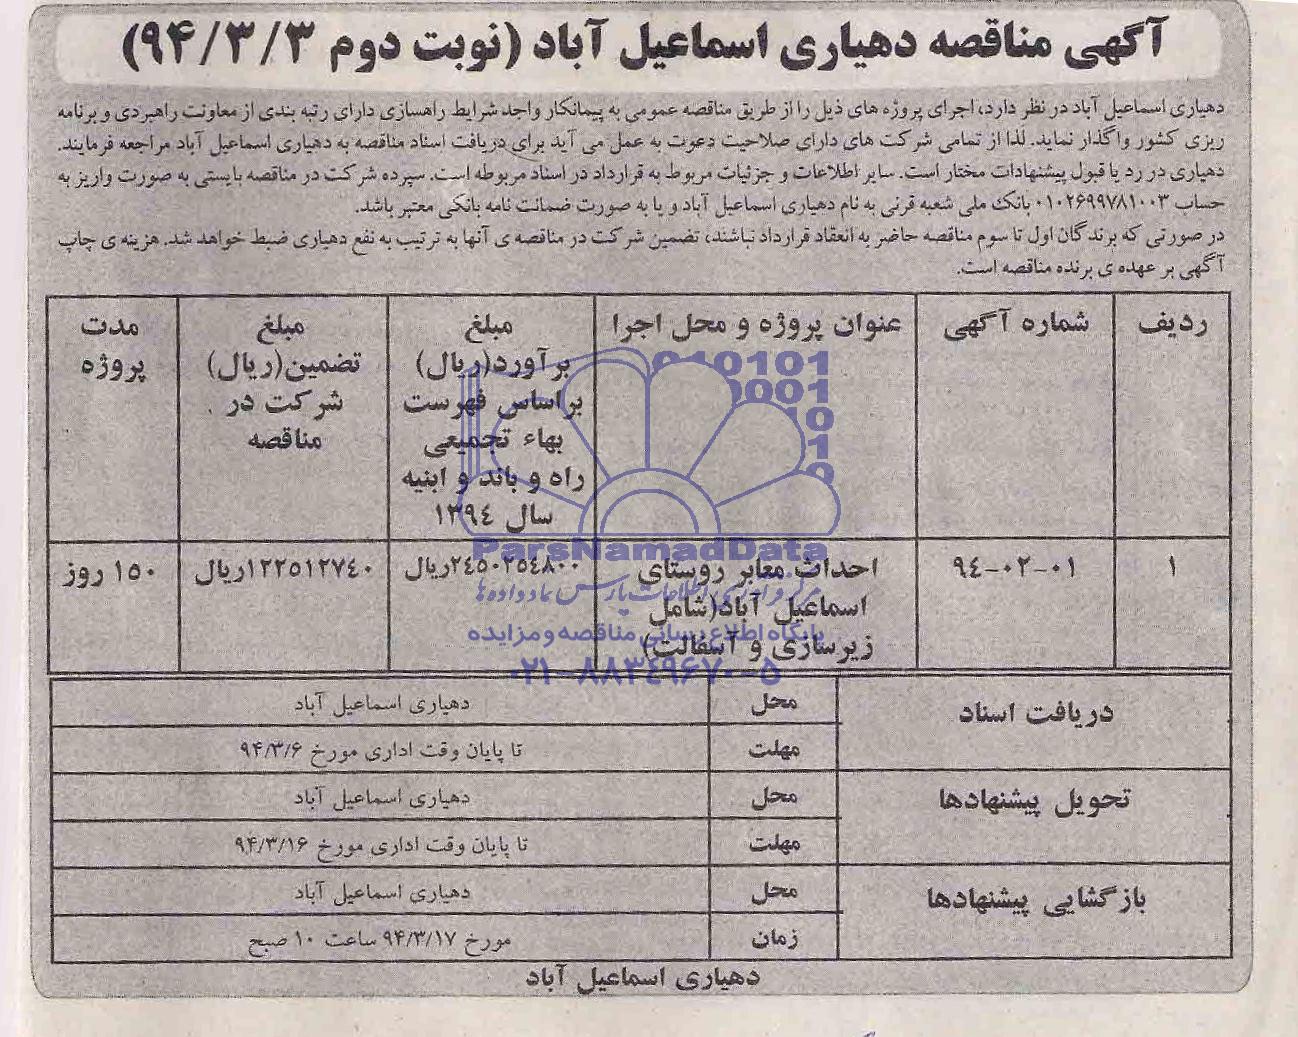 آگهی مناقصه دهیاری اسماعیل آباد (نوبت دوم ۹۴/۳/۳)
دهیاری اسماعیل آباد در نظر دارد، اجرای پروژه های ذیل را از طریق مناقصه عمومی به پیمانکار واجد شرایط راهسازی دارای رتبه بندی از معاونت راهبردی و برنامه
ریزی کشور واگذار نماید. لذا از تمامی شرکت های دارای صلاحیت دعوت به عمل می آید برای دریافت اسناد مناقصه به دهیاری اسماعیل آباد مراجعه فرمایند.
دهیاری در رد یا قبول پیشنهادات مختار است. سایر اطلاعات و جزئیات مربوط به قرارداد در اسناد مربوطه است. سپرده شرکت در مناقصه بایستی به صورت واریز به
حساب ۰۱۰۲۶۹۹۷۸۱۰۰۳ بانک ملی شعبه قرنی به نام دهیاری اسماعیل آباد و یا به صورت ضمانت نامه بانکی معتبر باشد.
در صورتی که برندگان اول تا سوم مناقصه حاضر به انعقاد قرارداد نباشند، تضمین شرکت در مناقصه ی آنها به ترتیب به نفع دهیاری ضبط خواهد شد. هزینه ی چاپ
آگهی بر عهده ی برنده مناقصه است.
ردیف شماره آگهی عنوان پروژه و محل اجرا مبلغ مبلغ مدت
برآورد(ریال) تضمین(ریال) پروژه
براساس فهرست شرکت در
بهاء تجمیعی مناقصه
راه و باند و ابنیه
سال ۱۳۹٤
۱ ۹٤-۰۲-۰۱ احداث معابر روستای ۲٤٥۰۲٥٤۸۰۰ریال ۱۲۲٥۱۲۷٤۰ریال ۱٥۰ روز
اسماعیل آباد(شامل
زیرسازی و آسفالت)
دریافت اسناد محل دهیاری اسماعیل آباد
مهلت تا پایان وقت اداری مورخ ۹۴/۳/۶
تحویل پیشنهادها محل دهیاری اسماعیل آباد
مهلت تا پایان وقت اداری مورخ ۹۴/۳/۱۶
بازگشایی پیشنهادها محل دهیاری اسماعیل آباد
زمان مورخ ۹۴/۳/۱۷ ساعت ۱۰ صبح
دهیاری اسماعیل آباد
ParsNamadData
پایگاه اطلاع رسانی مناقصه و مزایده
۰۲۱-۸۸۳٤۹۶۷۰-۵